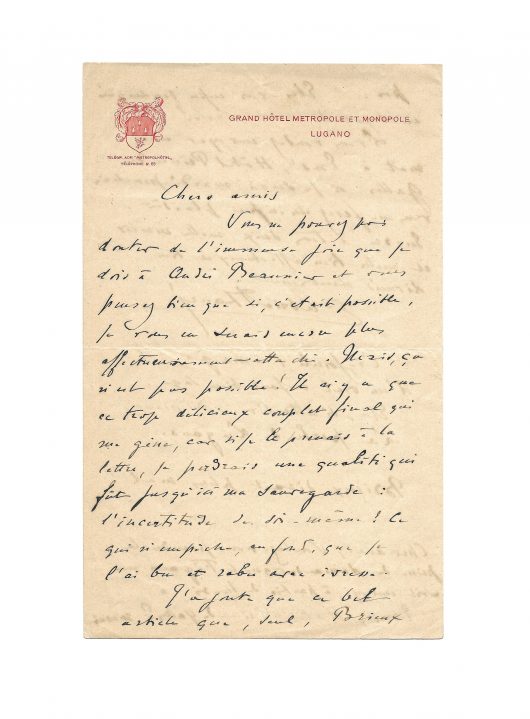 GRAND HÔTEL METROPOLE ET MONOPOLE
LUGANO
TELEGR. ADR. "METROPOLHÔTEL"
TÉLÉPHONE
Chers amis
Vous ne pouvez pas
douter de l'immense joie que je
dois à André Beaunier et vous
pensez bien que si, c'était possible,
je vous en serais encore plus
affectueusement attaché. Mais, ça
n'est pas possible! Il n'y a que
ce trop délicieux couplet final qui
me gêne, car si je le prenais à la
lettre, je perdrais une qualité qui
fût jusqu'ici ma sauvegarde :
l'incertitude de soi-même! Ce
qui n'empêche, au fond, que je
l'ai lu et relu avec ivresse.
J'ajoute que ce bel
article que, seul, Brieux